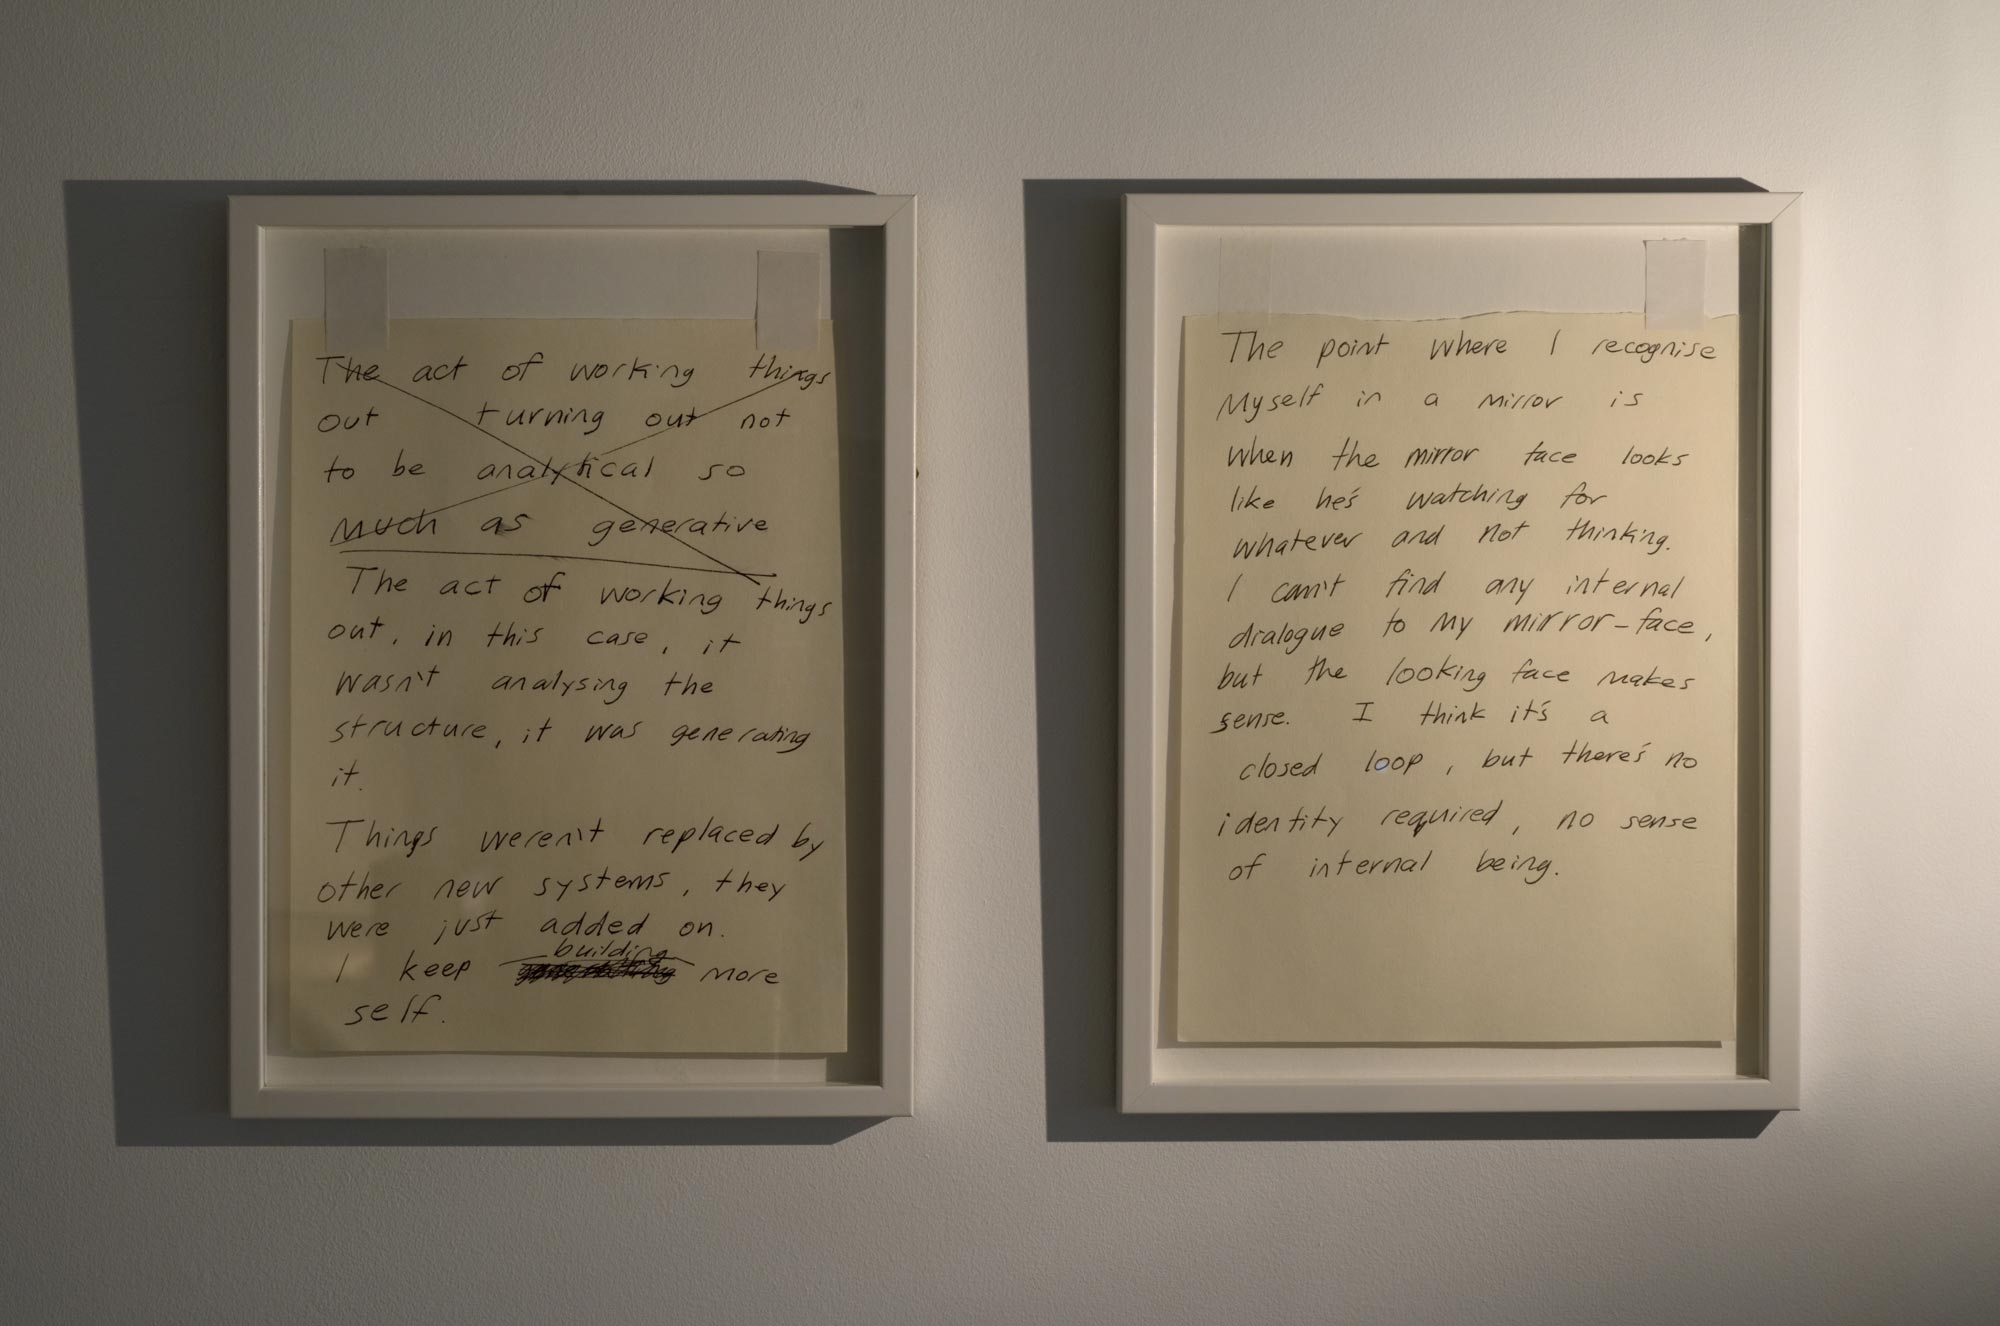 The act of working things
out turning out not
to be analytical so
much as generative
The act of working things
out, in this case, it
wasn't analysing the
structure, it was generating
it.
Things weren't replaced by
other new systems, they
were just added on.
building
I keep more
self.
The point where I recognise
Myself in a mirror is
when the mirror face looks
like he's watching for
whatever and not thinking.
I can't find any internal
dialogue to my mirror-face,
but the looking face makes
sense. I think it's a
closed loop, but there's no
identity required, no sense
of internal being.